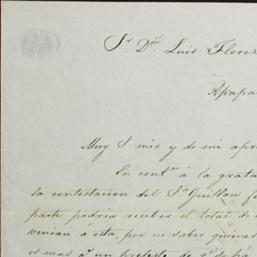 Sr. Dn. Luis Florez
Apapa
Muy S mio y de mi apre
En contn á la grata
la contestacion del Sr Guillon fe
parte podria recibir el total de
venian á esta, por no saber quienes
es mas q. un pretesto de